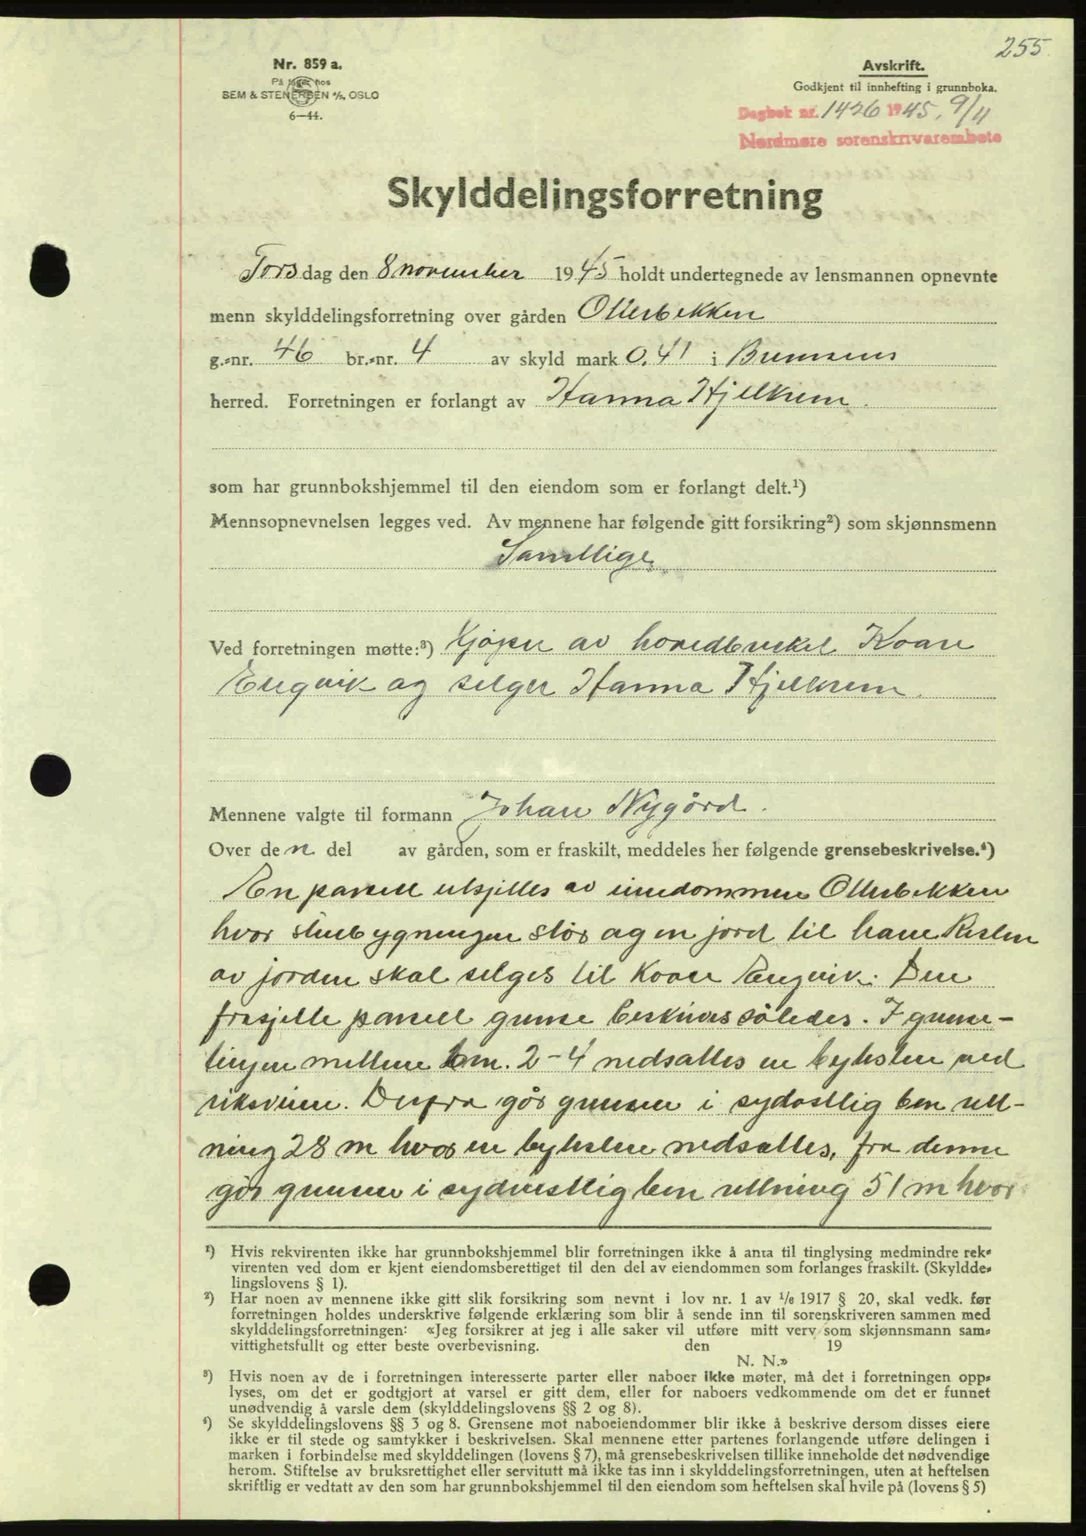 255
Nr. 859 a.
På lager hos
SEM & STENERSEN A/S, OSLO
6—44.
Avskrift.
Godkjent til innhefting i grunnboka.
Dagbok nr. 1426 1945, 9/11
Nordmøre sorenskrivarembete
Skylddelingsforretning
Torsdag den 8 november 1945 holdt undertegnede av lensmannen opnevnte
menn skylddelingsforretning over gården Otterbekken
g.-nr. 46 br.-nr. 4 av skyld mark 0,41 i Bremsnes
herred. Forretningen er forlangt av Hanna Hjelkrem.
som har grunnbokshjemmel til den eiendom som er forlangt delt.¹)
Mennsopnevnelsen legges ved. Av mennene har følgende gitt forsikring²) som skjønnsmenn
Samtlige.
Ved forretningen møtte:³) Kjøper av hovedbruket Koare
Engvik og selger Hanna Hjelkrem.
Mennene valgte til formann Johan Nygård.
Over den del av gården, som er fraskilt, meddeles her følgende grensebeskrivelse.⁴)
En parsell utsjilles av eiendommen Otterbekken
hvor stuebygningen står og en jord til have Resten
av jorden skal selges til Koare Engvik. Den
frasjilte parsell grense beskrives således. I grense-
lingen mellem b.n. 2-4 nedsattes en bytesten ved
riksveien. Derfra går grensen i sydøstlig ben ret-
ning 28 m hvor en bytesten nedsattes, fra denne
går grensen i sydvestlig ben retning 51 m hvor
¹) Hvis rekvirenten ikke har grunnbokshjemmel blir forretningen ikke å anta til tinglysing medmindre rek-
virenten ved dom er kjent eiendomsberettiget til den del av eiendommen som forlanges fraskilt. (Skyldde-
lingslovens § 1).
²) Har noen av mennene ikke gitt slik forsikring som nevnt i lov nr. 1 av 1/6 1917 § 20, skal vedk. før
forretningen holdes underskrive følgende erklæring som blir å sende inn til sorenskriveren sammen med
skylddelingsforretningen: «Jeg forsikrer at jeg i alle saker vil utføre mitt verv som skjønnsmann sam-
vittighetsfullt og etter beste overbevisning. den 19
N. N.»
³) Hvis noen av de i forretningen interesserte parter eller naboer ikke møter, må det i forretningen opp-
lyses, om det er godtgjort at varsel er gitt dem, eller for naboers vedkommende om det er funnet
unødvendig å varsle dem (skylddelingslovens §§ 2 og 8).
⁴) Se skylddelingslovens §§ 3 og 8. Grensene mot naboeiendommer blir ikke å beskrive dersom disses eiere
ikke er til stede og samtykker i beskrivelsen. Skal mennene etter partenes forlangende utføre delingen i
marken i forbindelse med skylddelingen (lovens § 7), må grensebeskrivelsen tillike inneholde det nødvendige
herom. Stiftelse av bruksrettighet eller servitutt må ikke tas inn i skylddelingsforretningen, uten at heftelsen
skriftlig er vedtatt av den som har grunnbokshjemmel til den eiendom som heftelsen skal hvile på (lovens § 5)